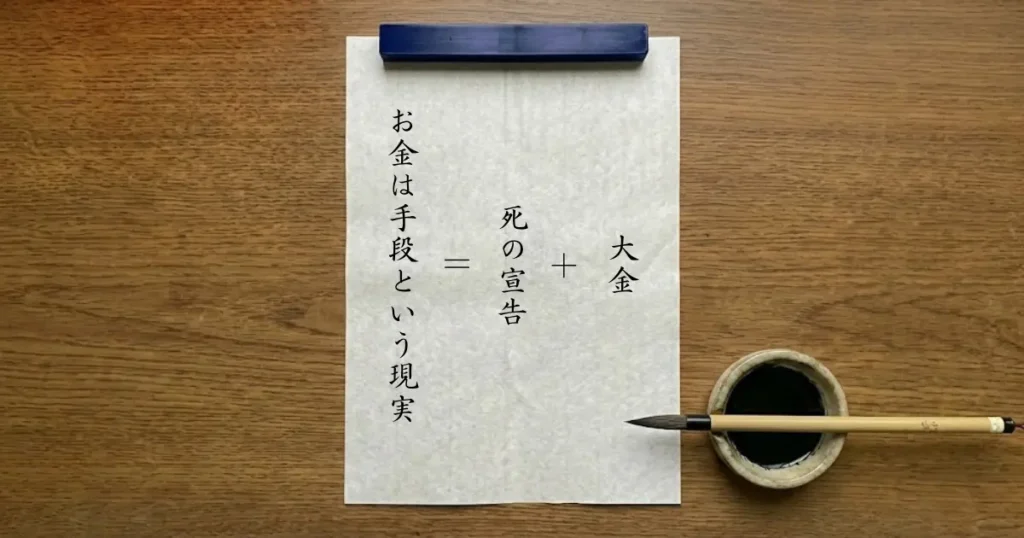 大金
+
死の宣告
=
お金は手段という現実